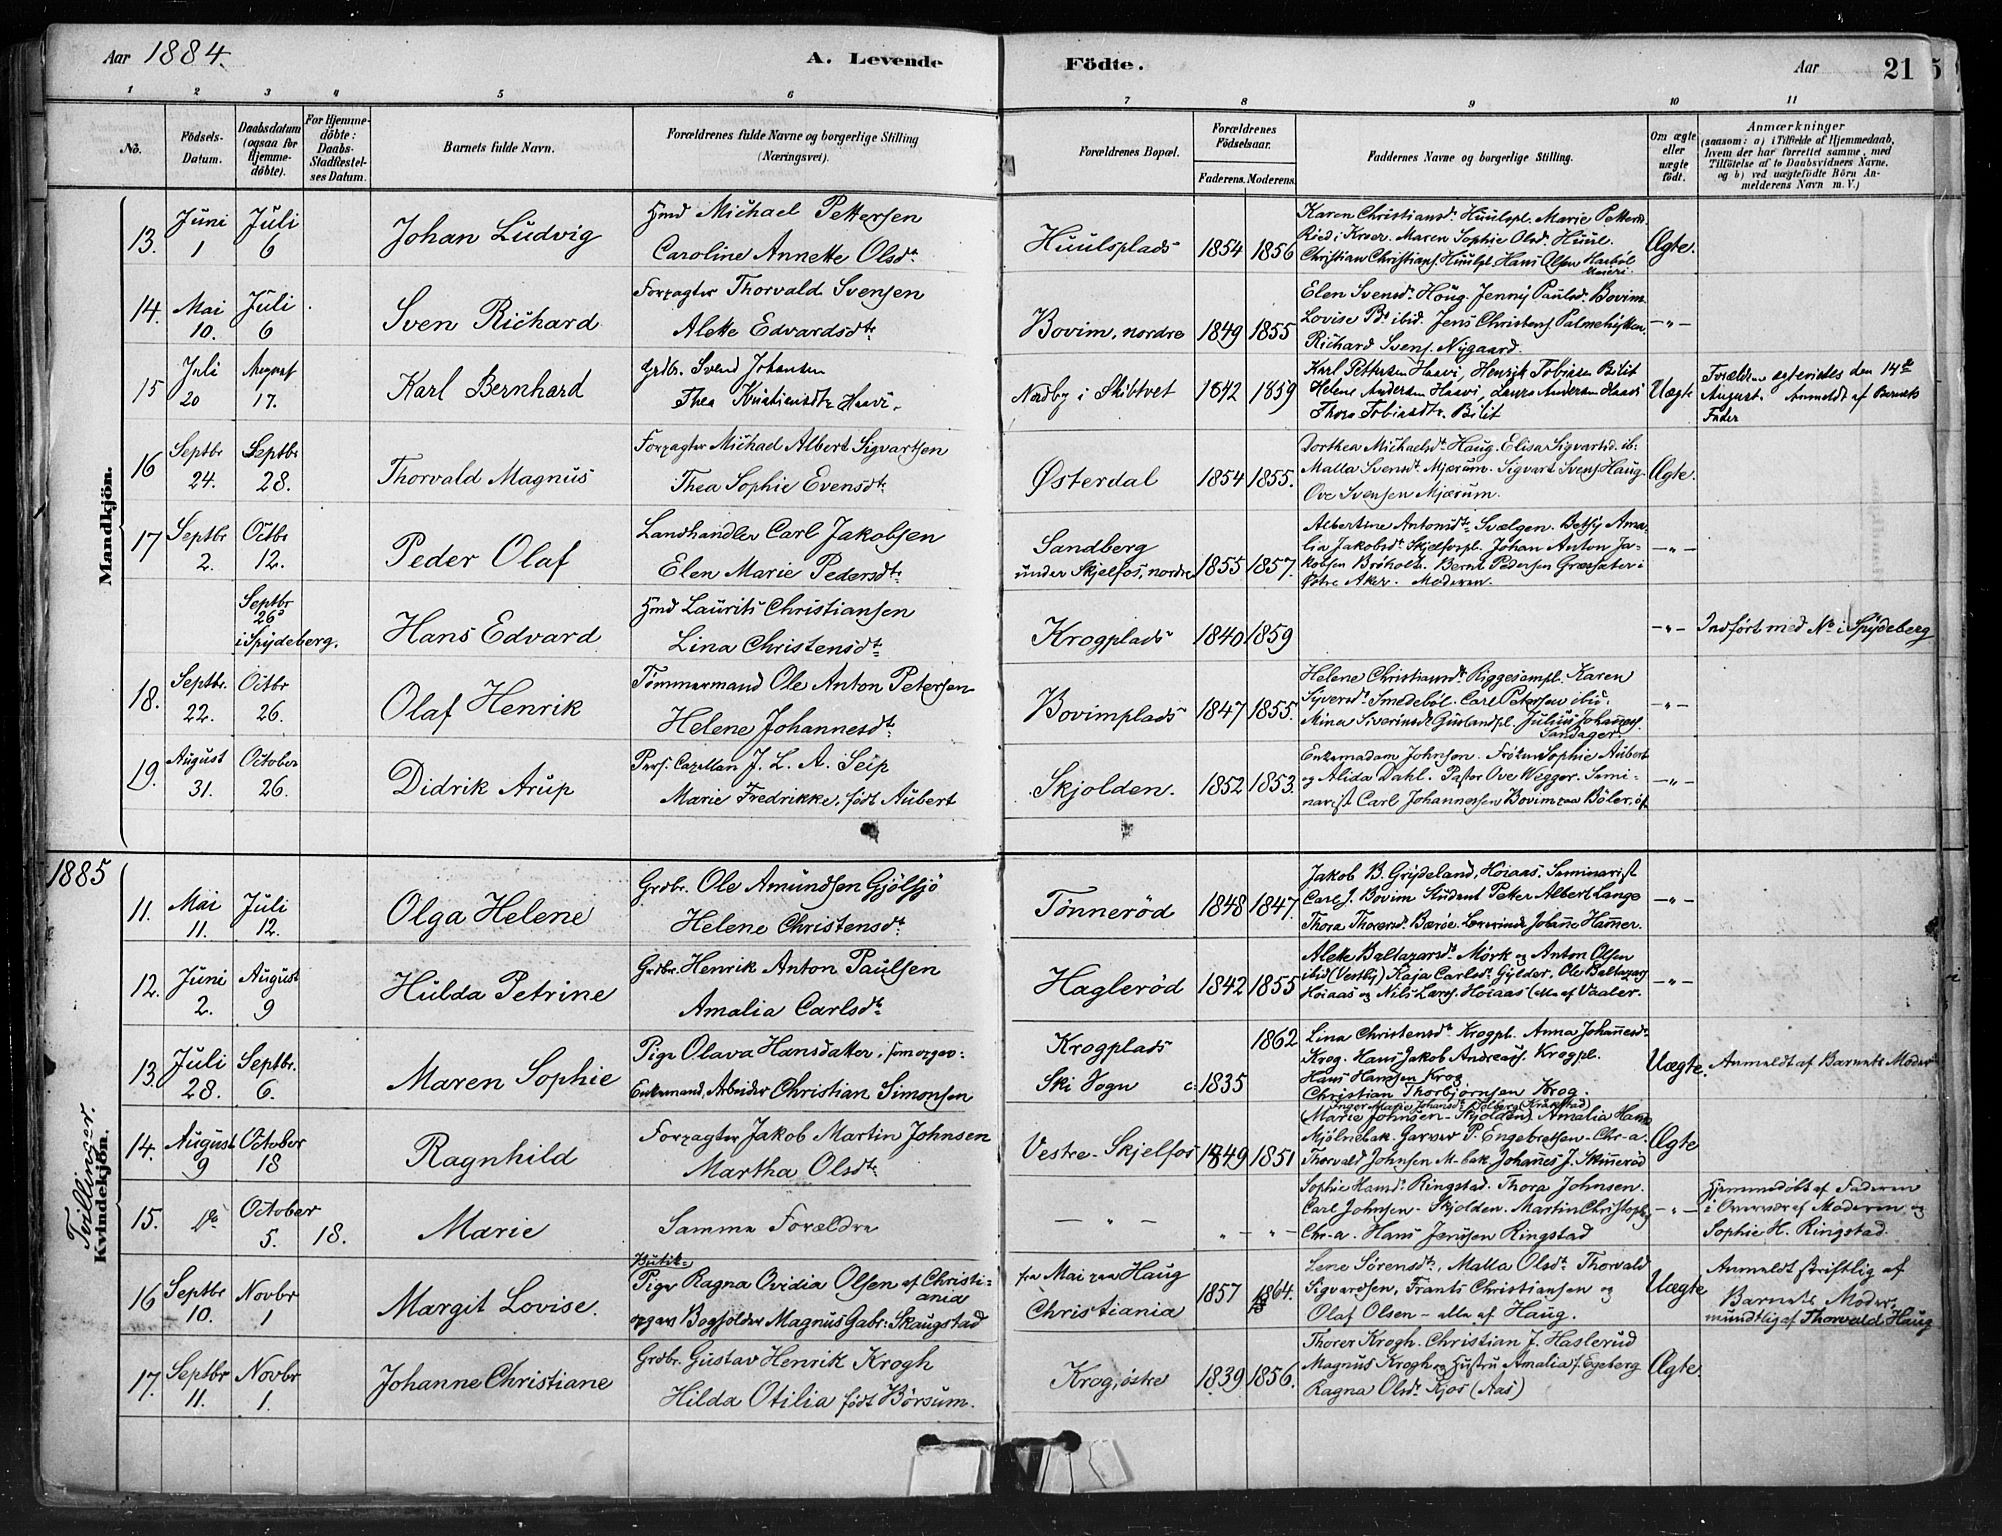 Aar 1884.
A. Levende Födte.
Aar 21
1 2 3 4 5 6 7 8 9 10 11
No.
Födsels-Datum.
Daabsdatum (ogsaa for Hjemme-döbte).
For Hjemme-döbte: Daabs-Stadfæstel-ses Datum.
Barnets fulde Navn.
Forældrenes fulde Navne og borgerlige Stilling (Næringsvei).
Forældrenes Bopæl.
Forældrenes Födselsaar.
Faderens. Moderens.
Faddernes Navne og borgerlige Stilling.
Om ægte eller uægte födt.
Anmærkninger
(saasom: a) i Tilfælde af Hjemmedaab, hvem der har forrettet samme, med Tilföielse af to Daabsvidners Navne, og b) ved uægtefödte Börn An-melderens Navn m. V.)
Mandkjön.
13. Juni 1 Juli 6 Johan Ludvig
Hmd Michael Pettersen
Caroline Annette Olsdr.
Huulsplads 1854 1856
Karen Christiansdr. Huulspl. Marie Petters.
Ried i Kroer. Maren Sophie Olsd. Huul.
Christian Christians. Huulspl. Hans Olsen
Ægte.
14. Mai 10. Juli 6 Sven Richard
Forpagter Thorvald Svensen
Alette Edvardsdtr
Bovim, nordre 1849 1855
Elen Svensdr. Houg. Jenny Paulsd. Bovim
Lovise Pdr ibid. Jens Christens. Palmehytten.
Richard Svens. Nygaard.
-"-
15 Juli 20 August 17. Karl Bernhard
Grdbr. Svend Johansen
Thea Kristiansdtr Haavi.
Nordby i Skibtvet 1842 1859
Karl Pettersen Haavi, Henrik Tobiasen Bilit
Helene Andersen Haavi, Laura Andersen Haavi
Thora Tobiasdtr. Bilit
Uægte
Forældrene ægteviedes den 14de
August. Anmeldt af Barnets
Fader
16 Septbr 24. Septbr 28. Thorvald Magnus
Forpagter Michael Albert Sigvartsen
Thea Sophie Evensdtr
Østerdal 1854 1855.
Dorthea Michaelsdr. Haug. Elisa Sigvartsd. ib.
Malla Svensdr. Mjærum. Sigvart Svens. Haug.
Ove Svensen Mjærum.
Ægte.
17 Septbr 2. Octbr 12. Peder Olaf
Landhandler Carl Jakobsen
Elen Marie Pedersdtr.
Sandberg
under Skjelfos, nordre 1855 1857.
Albertine Antonsdtr Svælgen. Betsy Ama-
lia Jakobsdr. Skjelfospl. Johan Anton Ja-
kobsen Brøholt. Bernt Pedersen Græsæter i
Østre Aker. Moderen.
-"-
Septbr 26
i Spydeberg.
Hans Edvard
Hmd Laurits Christiansen
Lina Christensdtr
Krogplads 1840 1859
-"- Indført med No i Spydeberg
18. Septbr. 22. Octbr 26. Olaf Henrik
Tømmermand Ole Anton Petersen
Helene Johannesdr.
Bovimplads 1847 1855.
Helene Christiansdr. Riggesampl. Karen
Syversdr. Smedebøl. Carl Petersen ibid.
Mina Siverinsdr. Guslandpl. Julius Johannes.
Sandager.
-"-
19. August 31. October 26. Didrik Arup
Pers. Capellan J. L. A. Seip
Marie Fredrikke, født Aubert
Skjolden. 1852 1853.
Enkemadam Johnsen. Frøken Sophie Aubert
og Alida Dahl. Pastor Ove Wegger. Semi-
narist Carl Johannessen Bovim paa Bøler, øf
-"-
1885
Tvillinger.
Kvindekjön.
11. Mai 11. Juli 12. Olga Helene
Grdbr. Ole Amundsen Gjølsjø
Helene Christensdr.
Tønnerød 1848 1847.
Jakob B. Grydeland, Hoiaas. Seminarist
Carl J. Bovim Student Petter Albert Lange
Thora Thorersdr. Bærøe. Lærerinde Johanne Hammer.
-"-
12. Juni 2. August 9 Hulda Petrine
Grdbr. Henrik Anton Paulsen
Amalia Carlsdtr
Haglerød 1842 1855
Alette Baltazarsdr Mørk og Anton Olsen
ibid (Vestby) Kaja Carlsdr. Gylder. Ole Baltazars.
Hoiaas og Nils Lars. Hoiaas (alle af Vaaler.
-"-
13. Juli 28. Septbr. 6. Maren Sophie
Pige Olava Hansdatter
Enkemand, Arbeider Christian Simonsen
Krogplads 1862
Ski Sogn c: 1835
Lina Christensdr. Krogpl. Anna Johannesdr.
Krog. Hans Jakob Andreas. Krogpl.
Hans Hansen Krog.
Christian Thorbjørnsen Krog.
Uægte. Anmeldt af Barnets Moder
14. August 9 October 18 Ragnhild
Forpagter Jakob Martin Johnsen
Martha Olsdtr
Vestre-Skjelfos 1849 1851
Inger Marie Johansdr. Solberg (Kraakstad)
(Marie Johnsen - Skjolden) Amalia Hans
Mjølnebak. Garver P. Engebretsen - Chr-a.
Thorvald Johnsen M-bak Johannes J. Skinnerød
Ægte
15. Do October 5. 18. Marie
Samme Forældre
-"- "- "-
Sophie Hansdr. Ringstad. Thora Johnsen.
Carl Johnsen - Skjolden. Martin Christophs.
Chr-a. Hans Jensen Ringstad
-"-
Hjemmedøbt af Faderen
i Overvær af Moderen og
Sophie H. Ringstad.
16 Septbr 10. Novbr 1 Margit Lovise.
Butik-
Pige Ragna Ovidia Olsen af Christi-
ania
opgav Bogholder Magnus Gabr: Skaugstad
fra Mai paa Haug
Christiania 1857 1864.
Lene Sørensdtr, Malla Olsdr. Thorvald
Sigvardsen, Frants Christiansen og
Olaf Olsen - alle af Haug.
Uægte
Anmeldt skriftlig af
Barnets Moder,
mundtlig af Thorvald Haug
17. Septbr 11. Novbr 1. Johanne Christiane
Grdbr. Gustav Henrik Krogh
Hilda Otilia født Børsum.
Krog, østre 1839 1856.
Thorer Krogh. Christian J. Haslerud
Magnus Krogh og Hustru Amalia f. Egeberg
Ragna Olsdr. Kjos (Aas)
Ægte.